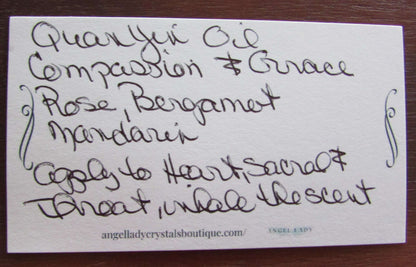 Quan Yin Oil
Compassion & Grace
Rose, Bergamot
Mandarin
apply to Heart, Sacral &
Throat, inhale the scent
angelladycrystalsboutique.com/
ANGEL LADY